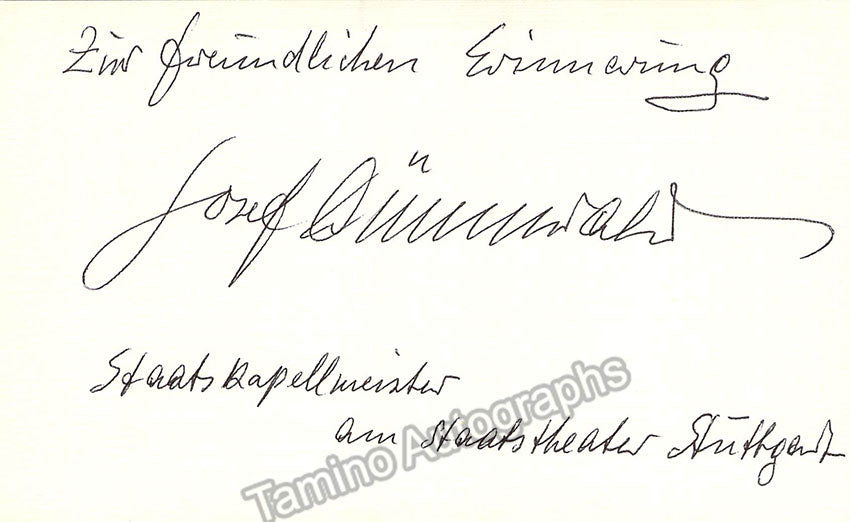 Zur freundlichen Erinnerung
Josef Dünnwald
Staatskapellmeister
am Staatstheater Stuttgart
Tamino Autographs